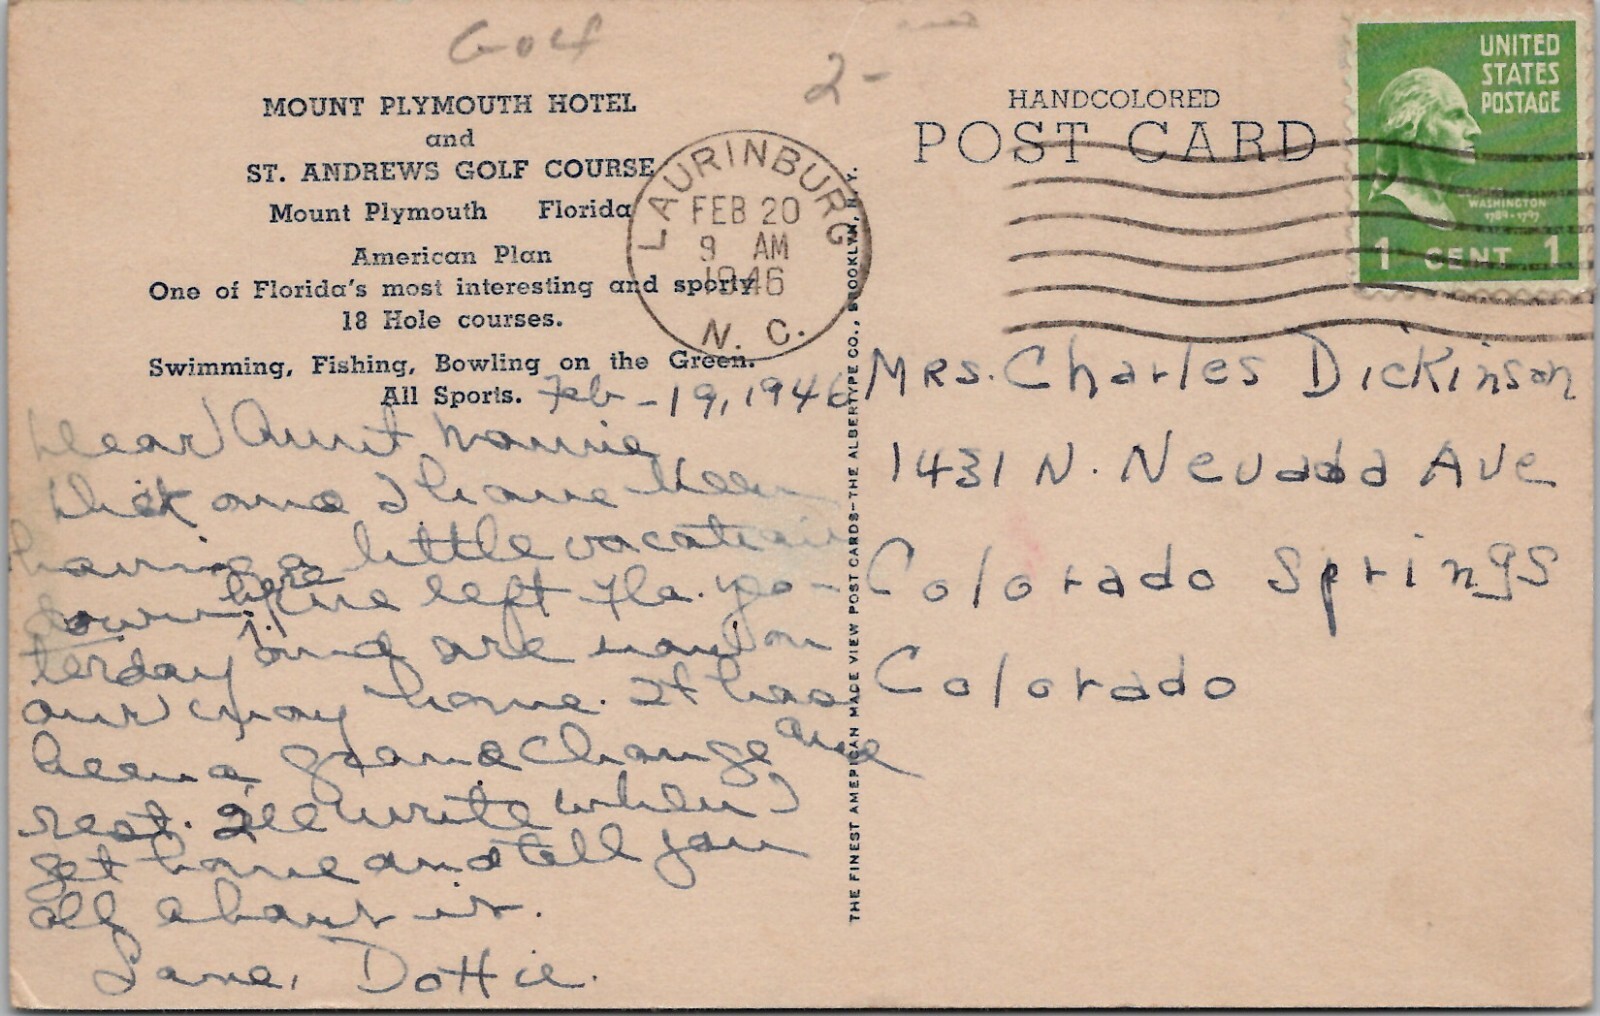 Golf
2-
MOUNT PLYMOUTH HOTEL
and
ST. ANDREWS GOLF COURSE
Mount Plymouth Florida
American Plan
One of Florida's most interesting and sporty
18 Hole courses.
Swimming, Fishing, Bowling on the Green.
All Sports.
Feb - 19, 1946
Dear Aunt Mamie
Dick and I have been
having a little vacation
down here. We left Fla. yes-
terday and are now on
our way home. It has
been a grand change and
rest. I'll write when I
get home and tell you
all about it.
Love, Dottie.
LAURINBURG
FEB 20
9 AM
1946
N. C.
THE FINEST AMERICAN MADE VIEW POST CARDS—THE ALBERTYPE CO., BROOKLYN, N. Y.
HANDCOLORED
POST CARD
UNITED
STATES
POSTAGE
WASHINGTON
1789-1797
1 CENT 1
Mrs. Charles Dickinson
1431 N. Nevada Ave
Colorado Springs
Colorado